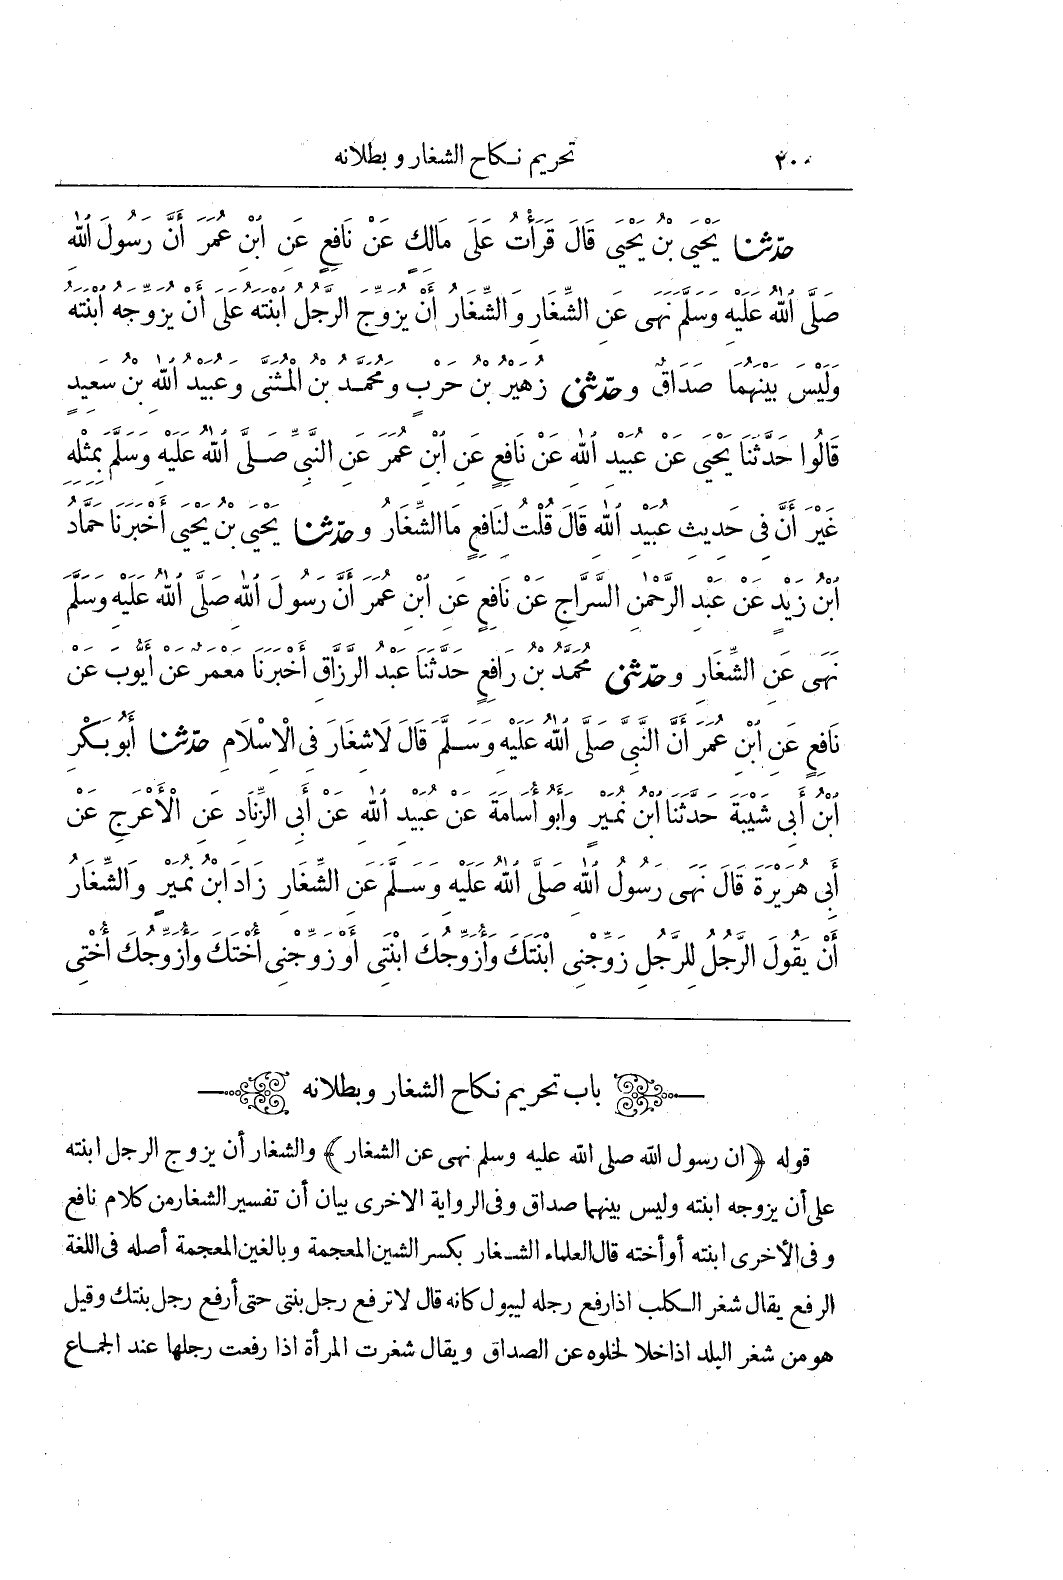 ٢٠٠ تحريم نكاح الشغار وبطلانه
حدّثنا يَحْيَى بْنُ يَحْيَى قَالَ قَرَأْتُ عَلَى مَالِكٍ عَنْ نَافِعٍ عَنِ ابْنِ عُمَرَ أَنَّ رَسُولَ اللهِ
صَلَّى اللهُ عَلَيْهِ وَسَلَّمَ نَهَى عَنِ الشِّغَارِ وَالشِّغَارُ أَنْ يُزَوِّجَ الرَّجُلُ ابْنَتَهُ عَلَى أَنْ يُزَوِّجَهُ ابْنَتَهُ
وَلَيْسَ بَيْنَهُمَا صَدَاقٌ وحدّثنى زُهَيْرُ بْنُ حَرْبٍ وَمُحَمَّدُ بْنُ الْمُثَنَّى وَعُبَيْدُ اللهِ بْنُ سَعِيدٍ
قَالُوا حَدَّثَنَا يَحْيَى عَنْ عُبَيْدِ اللهِ عَنْ نَافِعٍ عَنِ ابْنِ عُمَرَ عَنِ النَّبِىِّ صَلَّى اللهُ عَلَيْهِ وَسَلَّمَ بِمِثْلِهِ
غَيْرَ أَنَّ فِى حَدِيثِ عُبَيْدِ اللهِ قَالَ قُلْتُ لِنَافِعٍ مَا الشِّغَارُ وحدّثنا يَحْيَى بْنُ يَحْيَى أَخْبَرَنَا حَمَّادُ
ابْنُ زَيْدٍ عَنْ عَبْدِ الرَّحْمٰنِ السَّرَّاجِ عَنْ نَافِعٍ عَنِ ابْنِ عُمَرَ أَنَّ رَسُولَ اللهِ صَلَّى اللهُ عَلَيْهِ وَسَلَّمَ
نَهَى عَنِ الشِّغَارِ وحدّثنى مُحَمَّدُ بْنُ رَافِعٍ حَدَّثَنَا عَبْدُ الرَّزَّاقِ أَخْبَرَنَا مَعْمَرٌ عَنْ أَيُّوبَ عَنْ
نَافِعٍ عَنِ ابْنِ عُمَرَ أَنَّ النَّبِىَّ صَلَّى اللهُ عَلَيْهِ وَسَلَّمَ قَالَ لَا شِغَارَ فِى الْإِسْلَامِ حدّثنا أَبُو بَكْرِ
ابْنُ أَبِى شَيْبَةَ حَدَّثَنَا ابْنُ نُمَيْرٍ وَأَبُو أُسَامَةَ عَنْ عُبَيْدِ اللهِ عَنْ أَبِى الزِّنَادِ عَنِ الْأَعْرَجِ عَنْ
أَبِى هُرَيْرَةَ قَالَ نَهَى رَسُولُ اللهِ صَلَّى اللهُ عَلَيْهِ وَسَلَّمَ عَنِ الشِّغَارِ زَادَ ابْنُ نُمَيْرٍ وَالشِّغَارُ
أَنْ يَقُولَ الرَّجُلُ لِلرَّجُلِ زَوِّجْنِى ابْنَتَكَ وَأُزَوِّجُكَ ابْنَتِى أَوْ زَوِّجْنِى أُخْتَكَ وَأُزَوِّجُكَ أُخْتِى
باب تحريم نكاح الشغار وبطلانه
قوله ﴿ان رسول الله صلى الله عليه وسلم نهى عن الشغار﴾ والشغار أن يزوج الرجل ابنته
على أن يزوجه ابنته وليس بينهما صداق وفى الرواية الاخرى بيان أن تفسير الشغار من كلام نافع
وفى الأخرى ابنته أو أخته قال العلماء الشغار بكسر الشين المعجمة وبالغين المعجمة أصله فى اللغة
الرفع يقال شغر الكلب اذا رفع رجله ليبول كانه قال لا ترفع رجل بنتى حتى أرفع رجل بنتك وقيل
هو من شغر البلد اذا خلا لخلوه عن الصداق ويقال شغرت المرأة اذا رفعت رجلها عند الجماع